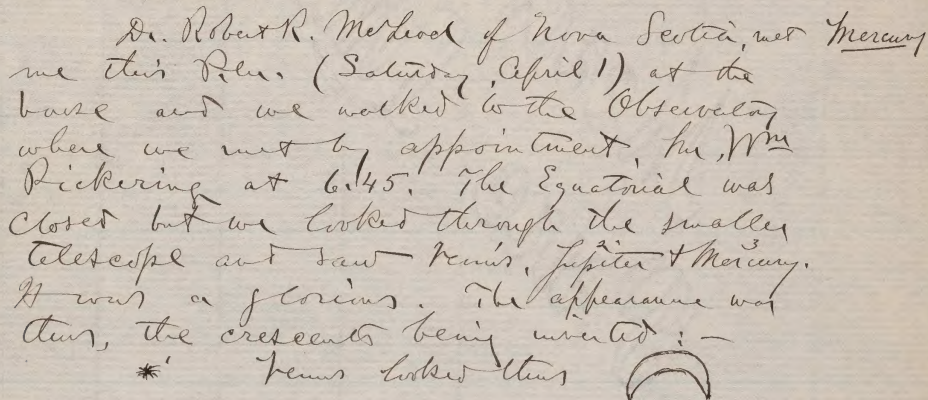 Dr. Robert R. McLeod of Nova Scotia, met Mercury
me this P.M. (Saturday, April 1) at the
house and we walked to the Observatory
where we met by appointment, Mr. Wm
Pickering at 6.45. The Equatorial was
closed but we looked through the smaller
telescope and saw Venus, Jupiter 2 & Mercury 3.
It was a glorious. The appearance was
thus, the crescents being inverted : —
* 1 Venus looked thus